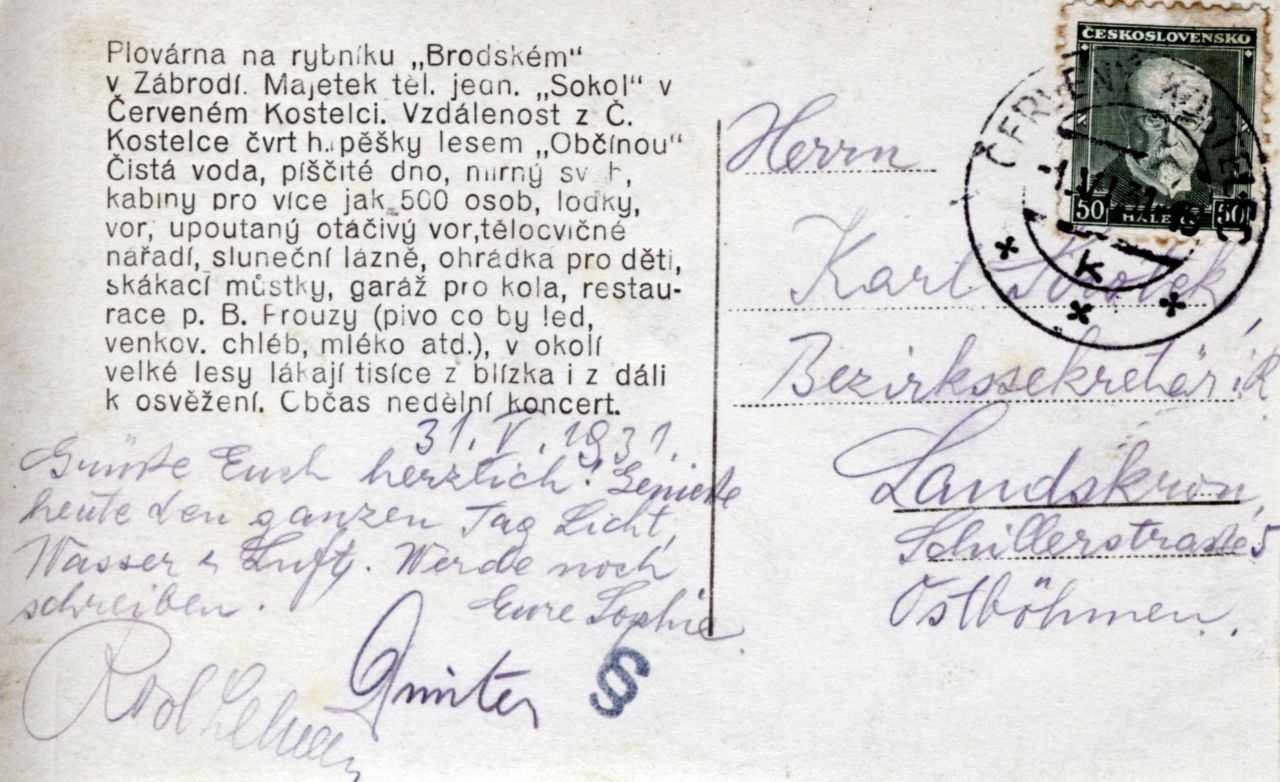 Plovárna na rybníku „Brodském“
v Zábrodí. Majetek těl. jedn. „Sokol“ v
Červeném Kostelci. Vzdálenost z Č.
Kostelce čvrt h. pěšky lesem „Občinou“
Čistá voda, píščité dno, mírný
kabiny pro více jak 500 osob, loďky,
vor, upoutaný otáčivý vor, tělocvičné
nářadí, sluneční lázně, ohrádka pro děti,
skákací můstky, garáž pro kola, restau-
race p. B. Frouzy (pivo co by led,
venkov. chléb, mléko atd.), v okolí
velké lesy lákají tisíce z blízka i z dáli
k osvěžení. Občas nedělní koncert.
31. V. 1931.
Grüsse Euch herzlich! Geniesse
heute den ganzen Tag Licht,
Wasser & Luft. Werde noch
schreiben. Eure Sophie
§
ČESKOSLOVENSKO
50 HALÉŘŮ 50
ČERVENÝ KOSTELEC
K
Herrn
Karl
Bezirkssekretär i. R.
Landskron
Schillerstrasse 5
Ostböhmen.